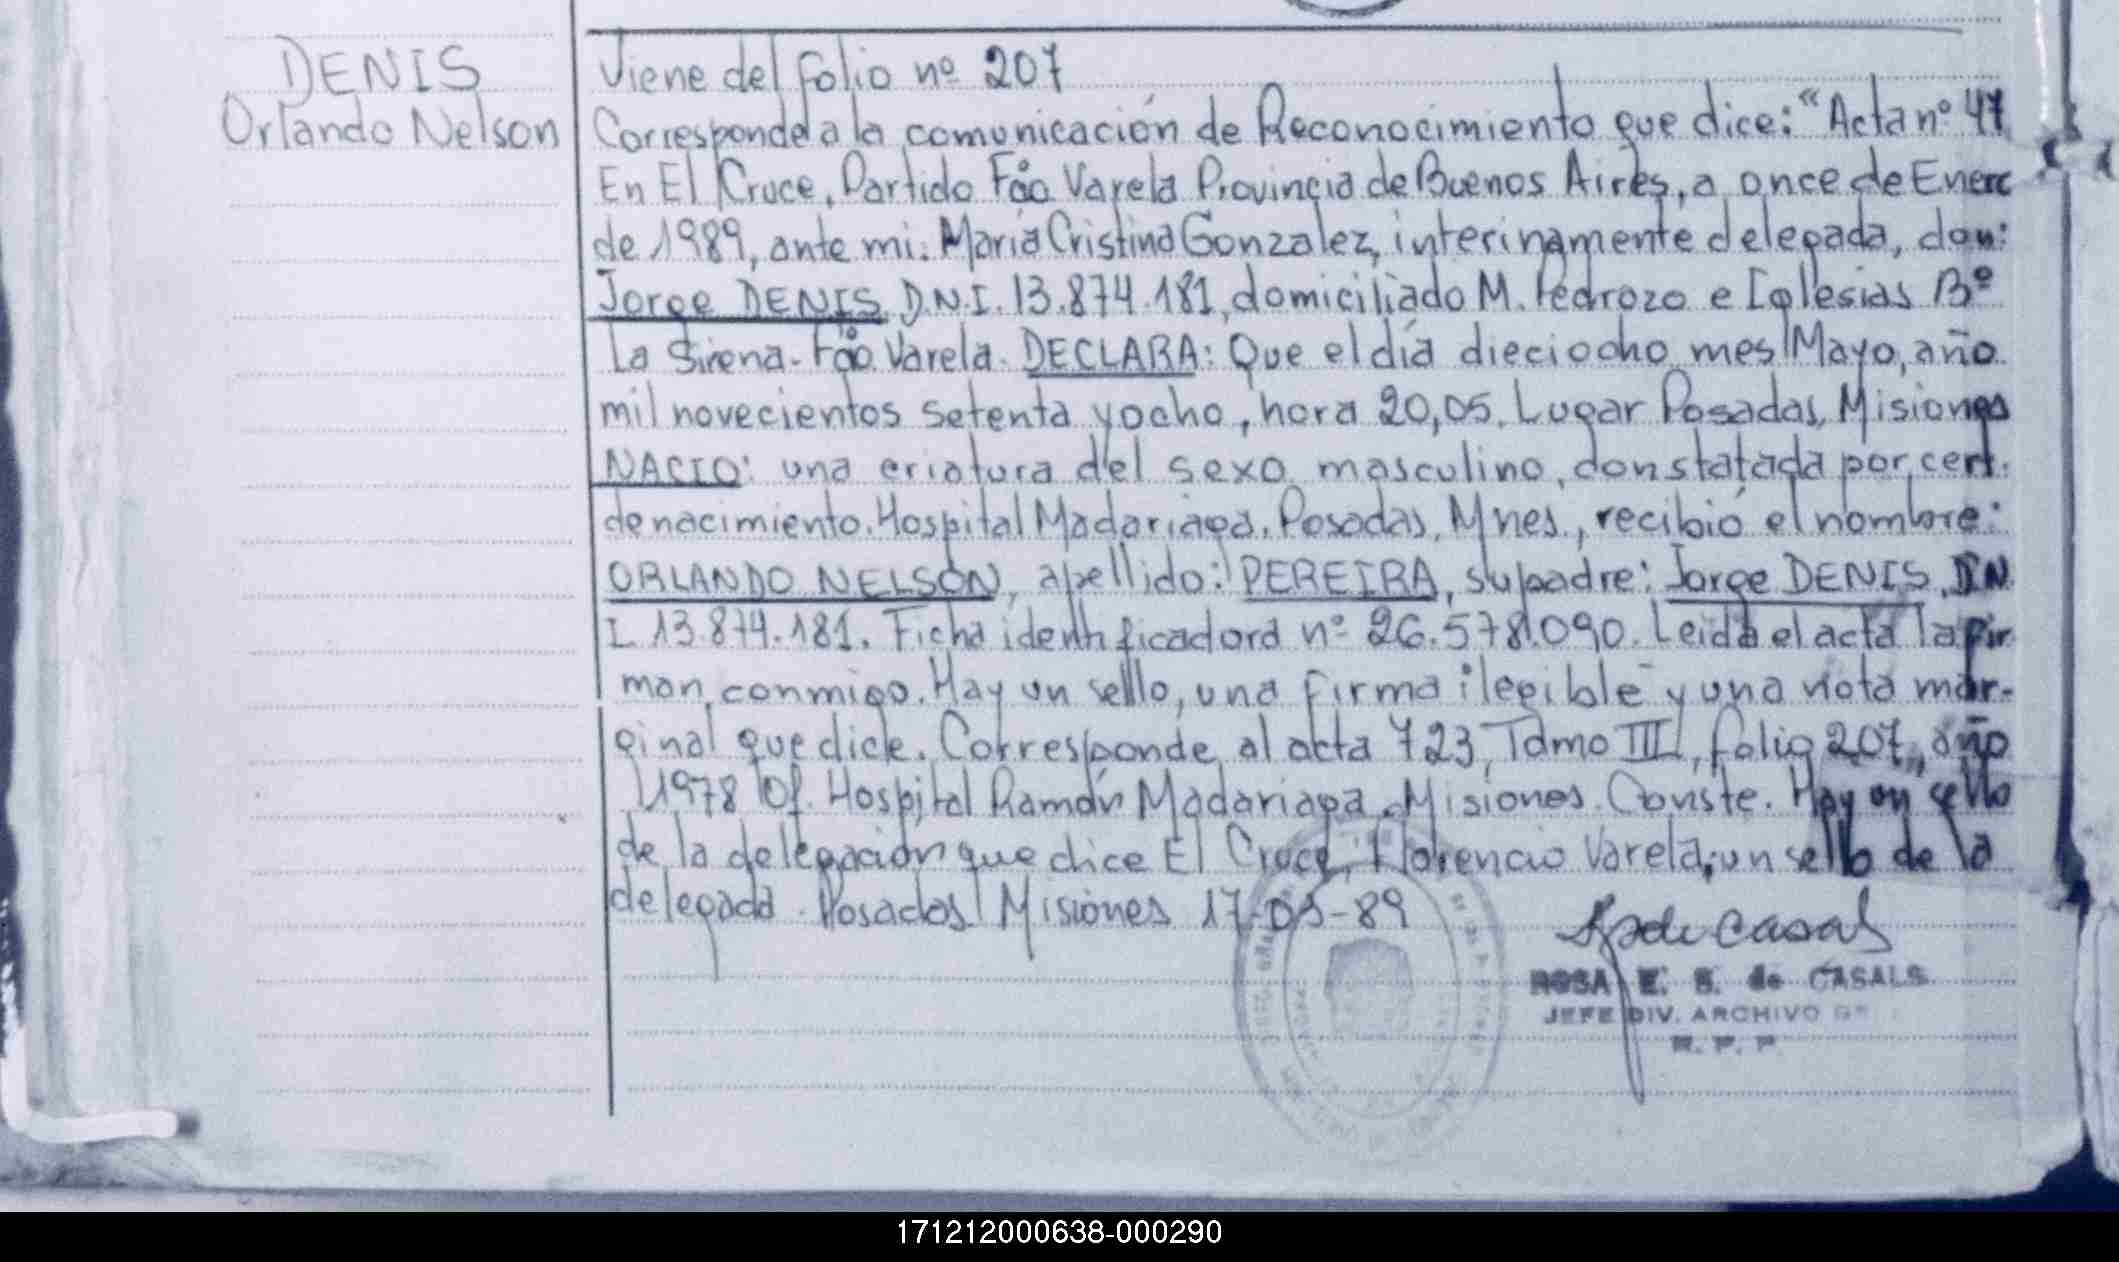 DENIS
Orlando Nelson
Viene del folio nº 207
Corresponde a la comunicación de Reconocimiento que dice: "Acta nº 47
En El Cruce, Partido Fcio Varela Provincia de Buenos Aires, a once de Enero
de 1989, ante mi: María Cristina Gonzalez, interinamente delegada, don:
Jorge DENIS D.N.I. 13.874.181, domiciliado M. Pedrozo e Iglesias Bº
La Sirena - Fcio Varela. DECLARA: Que el día dieciocho mes Mayo, año
mil novecientos setenta y ocho, hora 20,05. Lugar Posadas, Misiones
NACIO: una criatura del sexo masculino, constatada por cert.
de nacimiento. Hospital Madariaga. Posadas, Mnes., recibió el nombre:
ORLANDO NELSON, apellido: PEREIRA, su padre: Jorge DENIS, D.N.
I. 13.874.181. Ficha identificadora nº 26.578.090. Leida el acta la fir
man conmigo. Hay un sello, una firma ilegible y una nota mar-
ginal que dice. Corresponde al acta 723, Tomo III, folio 207, año
1978 Of. Hospital Ramón Madariaga. Misiones. Conste. Hay un sello
de la delegación que dice El Cruce, Florencio Varela; un sello de la
delegada. Posadas Misiones 17-05-89
ROSA E. S. de CASALS
JEFE DIV. ARCHIVO
R. P. P.
171212000638-000290